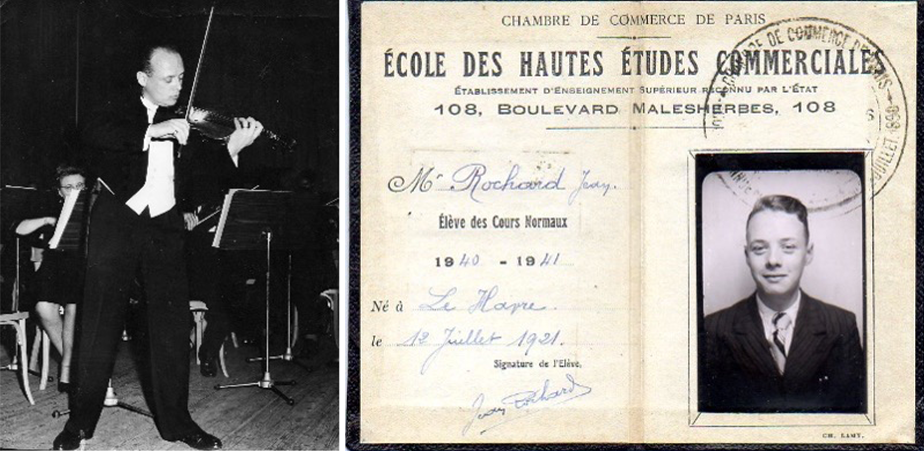 CHAMBRE DE COMMERCE DE PARIS
ÉCOLE DES HAUTES ÉTUDES COMMERCIALES
ÉTABLISSEMENT D'ENSEIGNEMENT SUPÉRIEUR RECONNU PAR L'ÉTAT
108, BOULEVARD MALESHERBES, 108
Mr Rochard Jean.
Élève des Cours Normaux
1940 - 1941
Né à Le Havre.
le 12 Juillet 1921.
Signature de l'Élève,
Jean Rochard
CH. LAMY.
CHAMBRE DE COMMERCE DE PARIS
JUILLET 1898